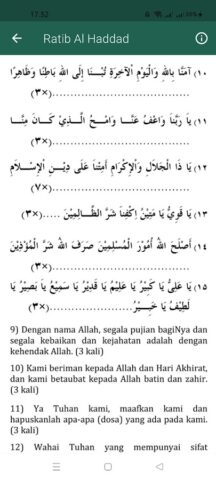 17.52
38%
Ratib Al Haddad
١٠) آمَنَّا بِاللهِ وَالْيَوْمِ الْآخِرَةِ تُبْنَا إِلَى اللهِ بَاطِنًا وَظَاهِرًا
....................................(٣×)
١١) يَا رَبَّنَا وَاعْفُ عَنَّا وَامْحُ الَّذِيْ كَانَ مِنَّا
....................................(٣×)
١٢) يَا ذَا الْجَلَالِ وَالْإِكْرَامِ أَمِتْنَا عَلَى دِيْنِ الْإِسْلَامِ
....................................(٧×)
١٣) يَا قَوِيُّ يَا مَتِيْنُ إِكْفِنَا شَرَّ الظَّالِمِيْنَ .....(٣×)
١٤) أَصْلَحَ اللهُ أُمُوْرَ الْمُسْلِمِيْنَ صَرَفَ اللهُ شَرَّ الْمُؤْذِيْنَ
....................................(٣×)
١٥) يَا عَلِيُّ يَا كَبِيْرُ يَا عَلِيْمُ يَا قَدِيْرُ يَا سَمِيْعُ يَا بَصِيْرُ يَا
لَطِيْفُ يَا خَبِيْرُ....................................(٣×)
9) Dengan nama Allah, segala pujian bagiNya dan
segala kebaikan dan kejahatan adalah dengan
kehendak Allah. (3 kali)
10) Kami beriman kepada Allah dan Hari Akhirat,
dan kami betaubat kepada Allah batin dan zahir.
(3 kali)
11) Ya Tuhan kami, maafkan kami dan
hapuskanlah apa-apa (dosa) yang ada pada kami.
(3 kali)
12) Wahai Tuhan yang mempunyai sifat